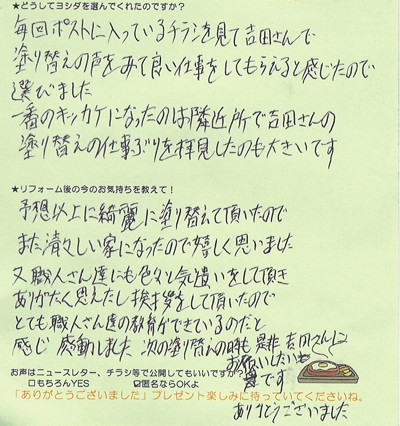 ★どうしてヨシダを選んでくれたのですか？
毎回ポストに入っているチラシを見て吉田さんで
塗り替えの声をみて良い仕事をしてもらえると感じたので
選びました
一番のキッカケになったのは隣近所で吉田さんの
塗り替えの仕事ぶりを拝見したのも大きいです
★リフォーム後の今のお気持ちを教えて！
予想以上に綺麗に塗り替えて頂いたので
また清々しい家になったので嬉しく思いました
又職人さん達にも色々な気遣いをして頂き
ありがたく思えたし挨拶をして頂いたので
とても職人さん達の教育ができているのだと
感じ 感動しました 次の塗り替えの時も 是非 吉田さんに
お願いしたい
です
お声はニュースレター、チラシ等で公開してもいいですか？
□もちろんYES ☑匿名ならOKよ
「ありがとうございました」プレゼント楽しみに待っていてくださいね。
ありがとうございました